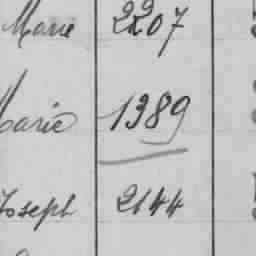 Marie 2207
Marie 1389
Joseph 2144